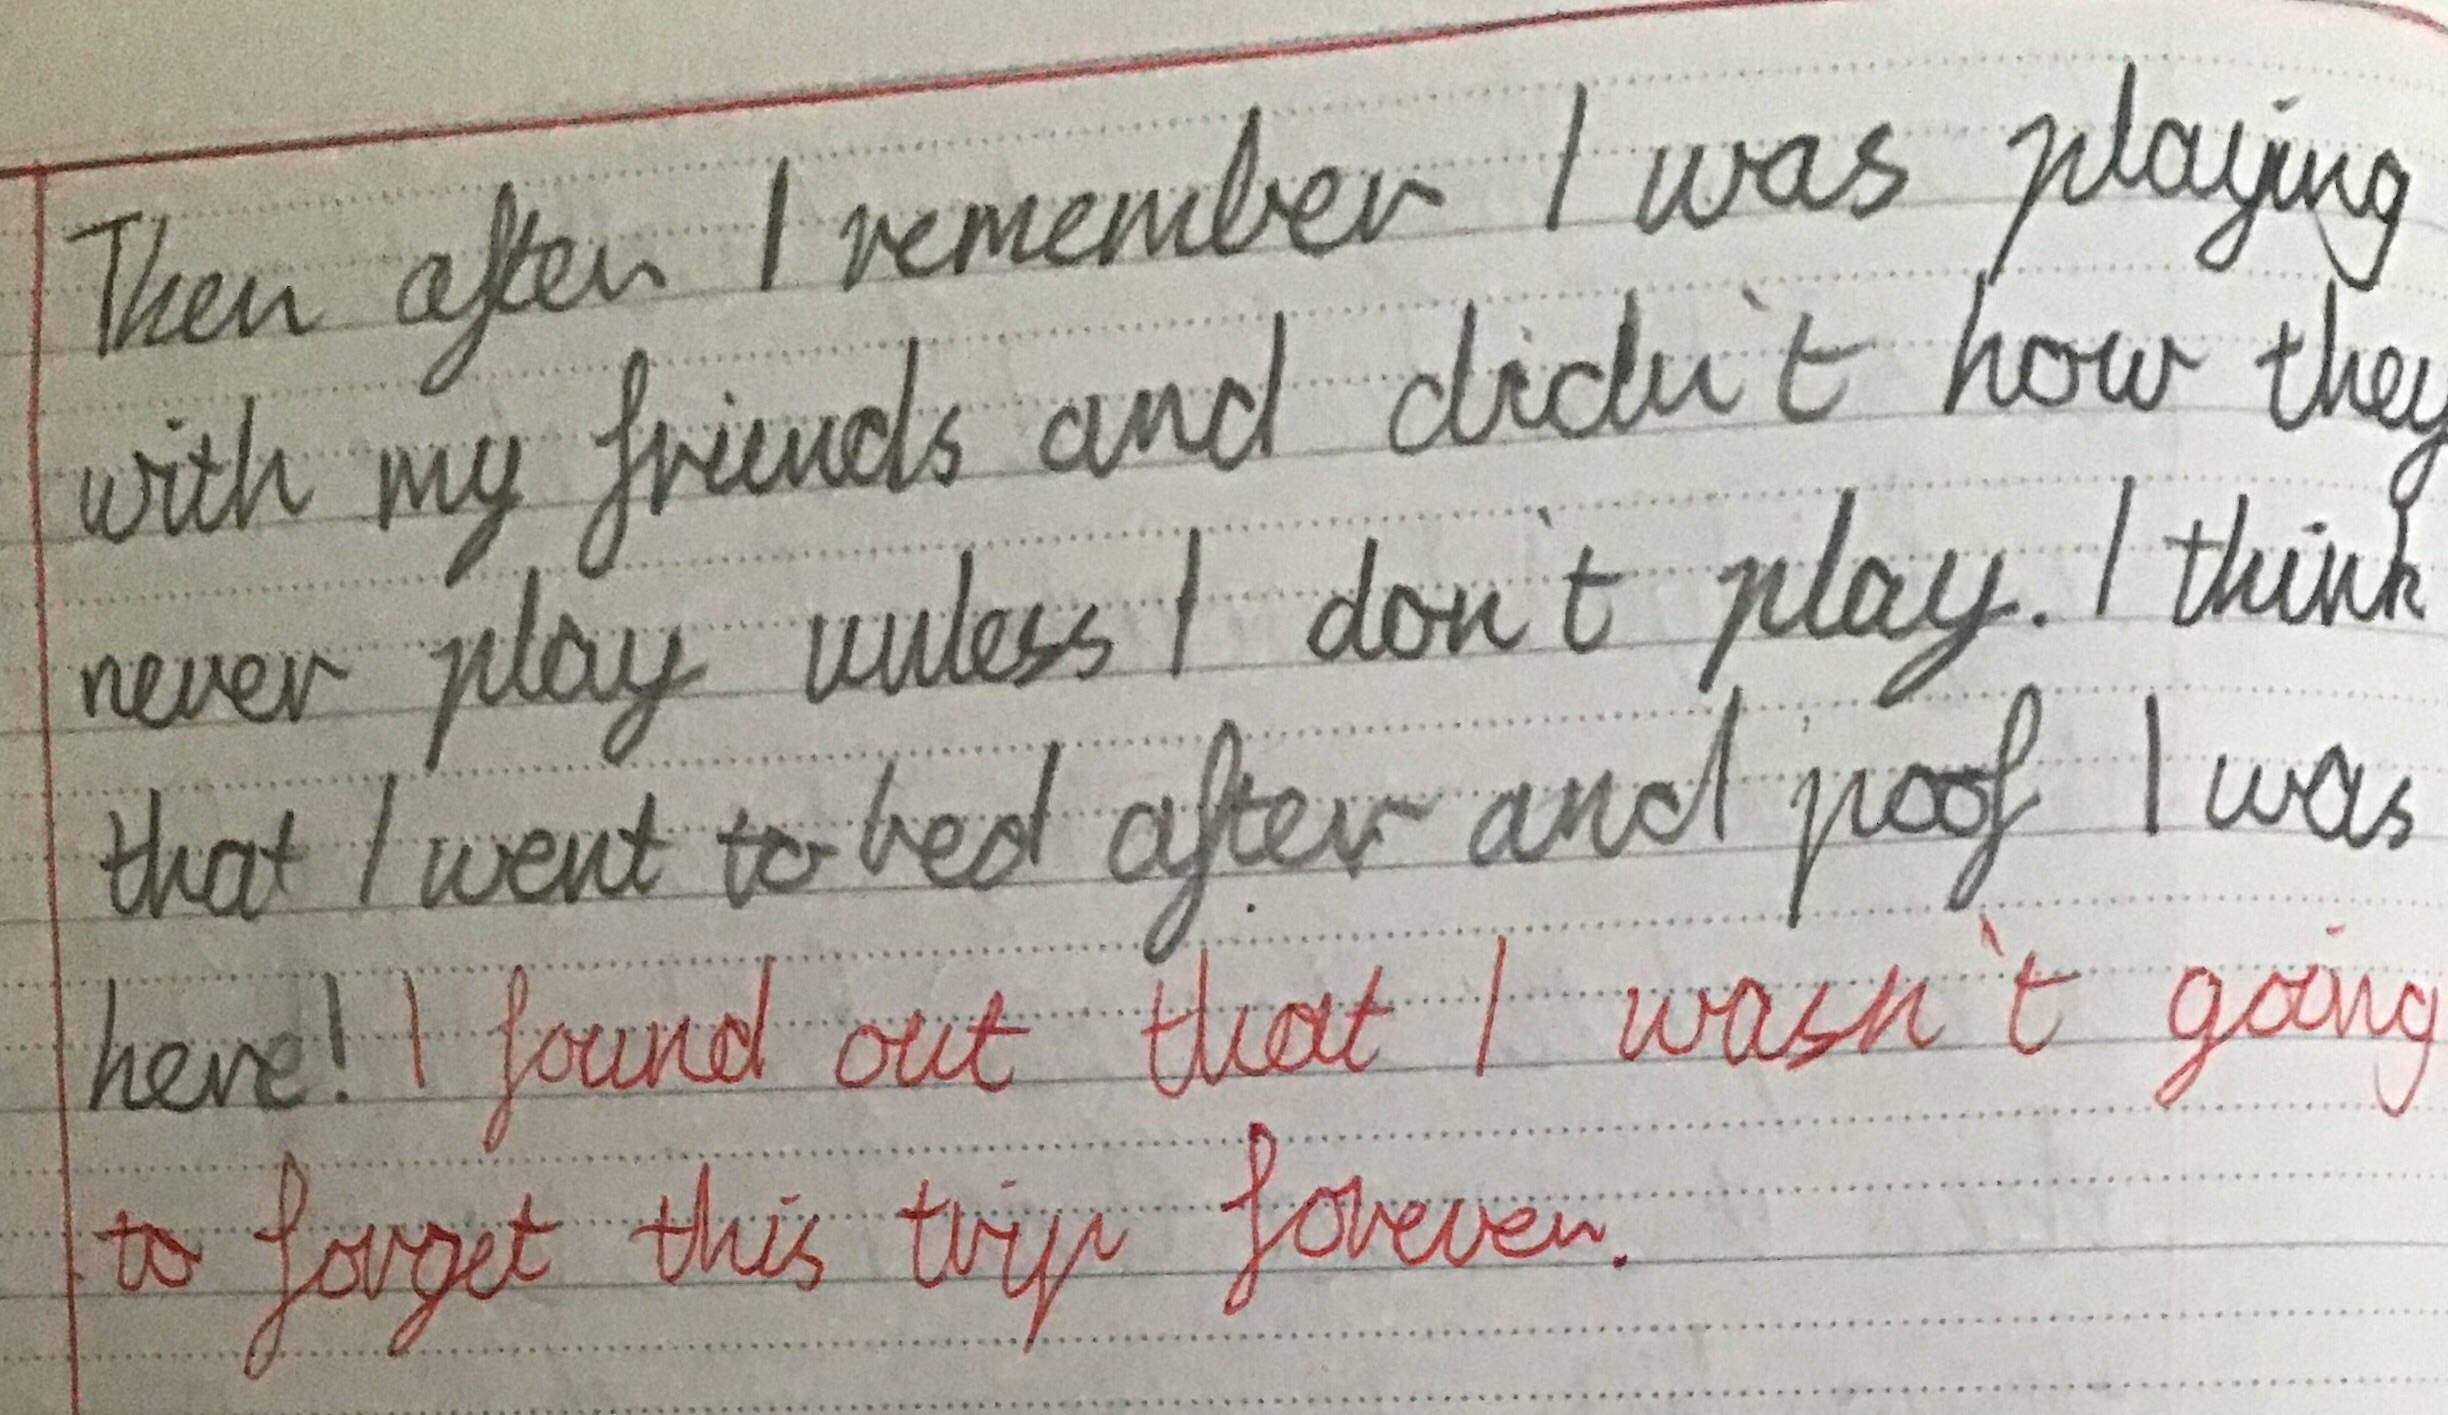 Then after I remember I was playing
with my friends and didn't how they
never play unless I don't play. I think
that I went to bed after and poof I was
here! I found out that I wasn't going
to forget this trip forever.